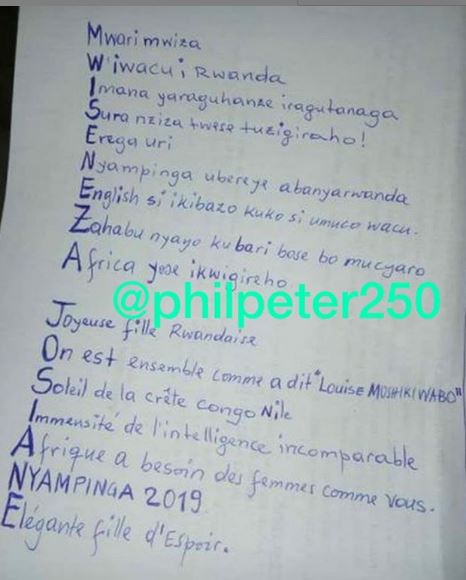 Mwari mwiza
W'iwacu i Rwanda
Imana yaraguhanze iragutanaga
Sura nziza twese tuzigiraho!
Erega uri
Nyampinga ubereye abanyarwanda
English si ikibazo kuko si umuco wacu.
Zahabu nyayo kubari bose bo mucyaro
Africa yose ikwigireho
@philpeter250
Joyeuse fille Rwandaise
On est ensemble comme a dit "Louise MUSHIKIWABO"
Soleil de la crête congo Nile
Immensité de l'intelligence incomparable
Afrique a besoin des femmes comme vous.
NYAMPINGA 2019
Elégante fille d'Espoir.